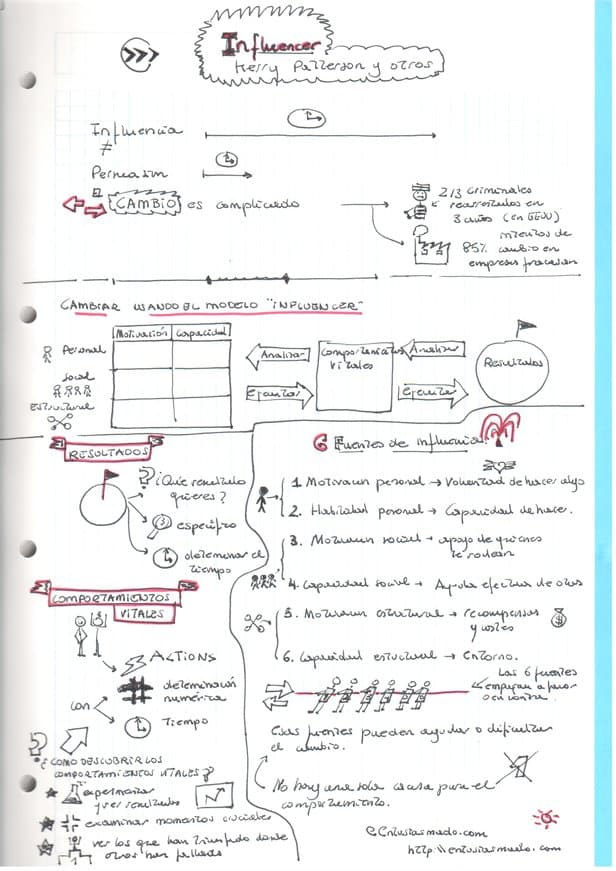 Influencer
Kerry Patterson y otros
Influencia
≠
Persuasión
CAMBIO es complicado
2/3 criminales
rearrestados en
3 años (en EEUU)
intentos de
85% cambio en
empresas fracasan
CAMBIAR USANDO EL MODELO "INFLUENCER"
Motivación Capacidad
Personal
Social
ESTRUCTURAL
Analizar
Ejecutar
Comportamientos
Vitales
Analizar
Ejecutar
Resultados
RESULTADOS
? ¿Qué resultado
quieres?
específico
determinar el
tiempo
COMPORTAMIENTOS
VITALES
ACTIONS
con
# determinación
numérica
Tiempo
? ¿COMO DESCUBRIR LOS
COMPORTAMIENTOS VITALES?
experimentar
y ver resultados
examinar momentos cruciales
ver los que han triunfado donde
otros han fallado
6 Fuentes de influencia
1. Motivacion personal → Voluntad de hacer algo
2. Habilidad personal → Capacidad de hacer.
3. Motivacion social → apoyo de quienes
te rodean
4. Capacidad social → Ayuda efectiva de otros
5. Motivacion estructural → recompensas
y costes
6. Capacidad estructural → Entorno.
Las 6 fuentes
empujan a favor
o en contra.
Esas fuentes pueden ayudar o dificultar
el cambio.
No hay una sola causa para el
comportamiento.
@Entusiasmado.com
http://entusiasmado.com